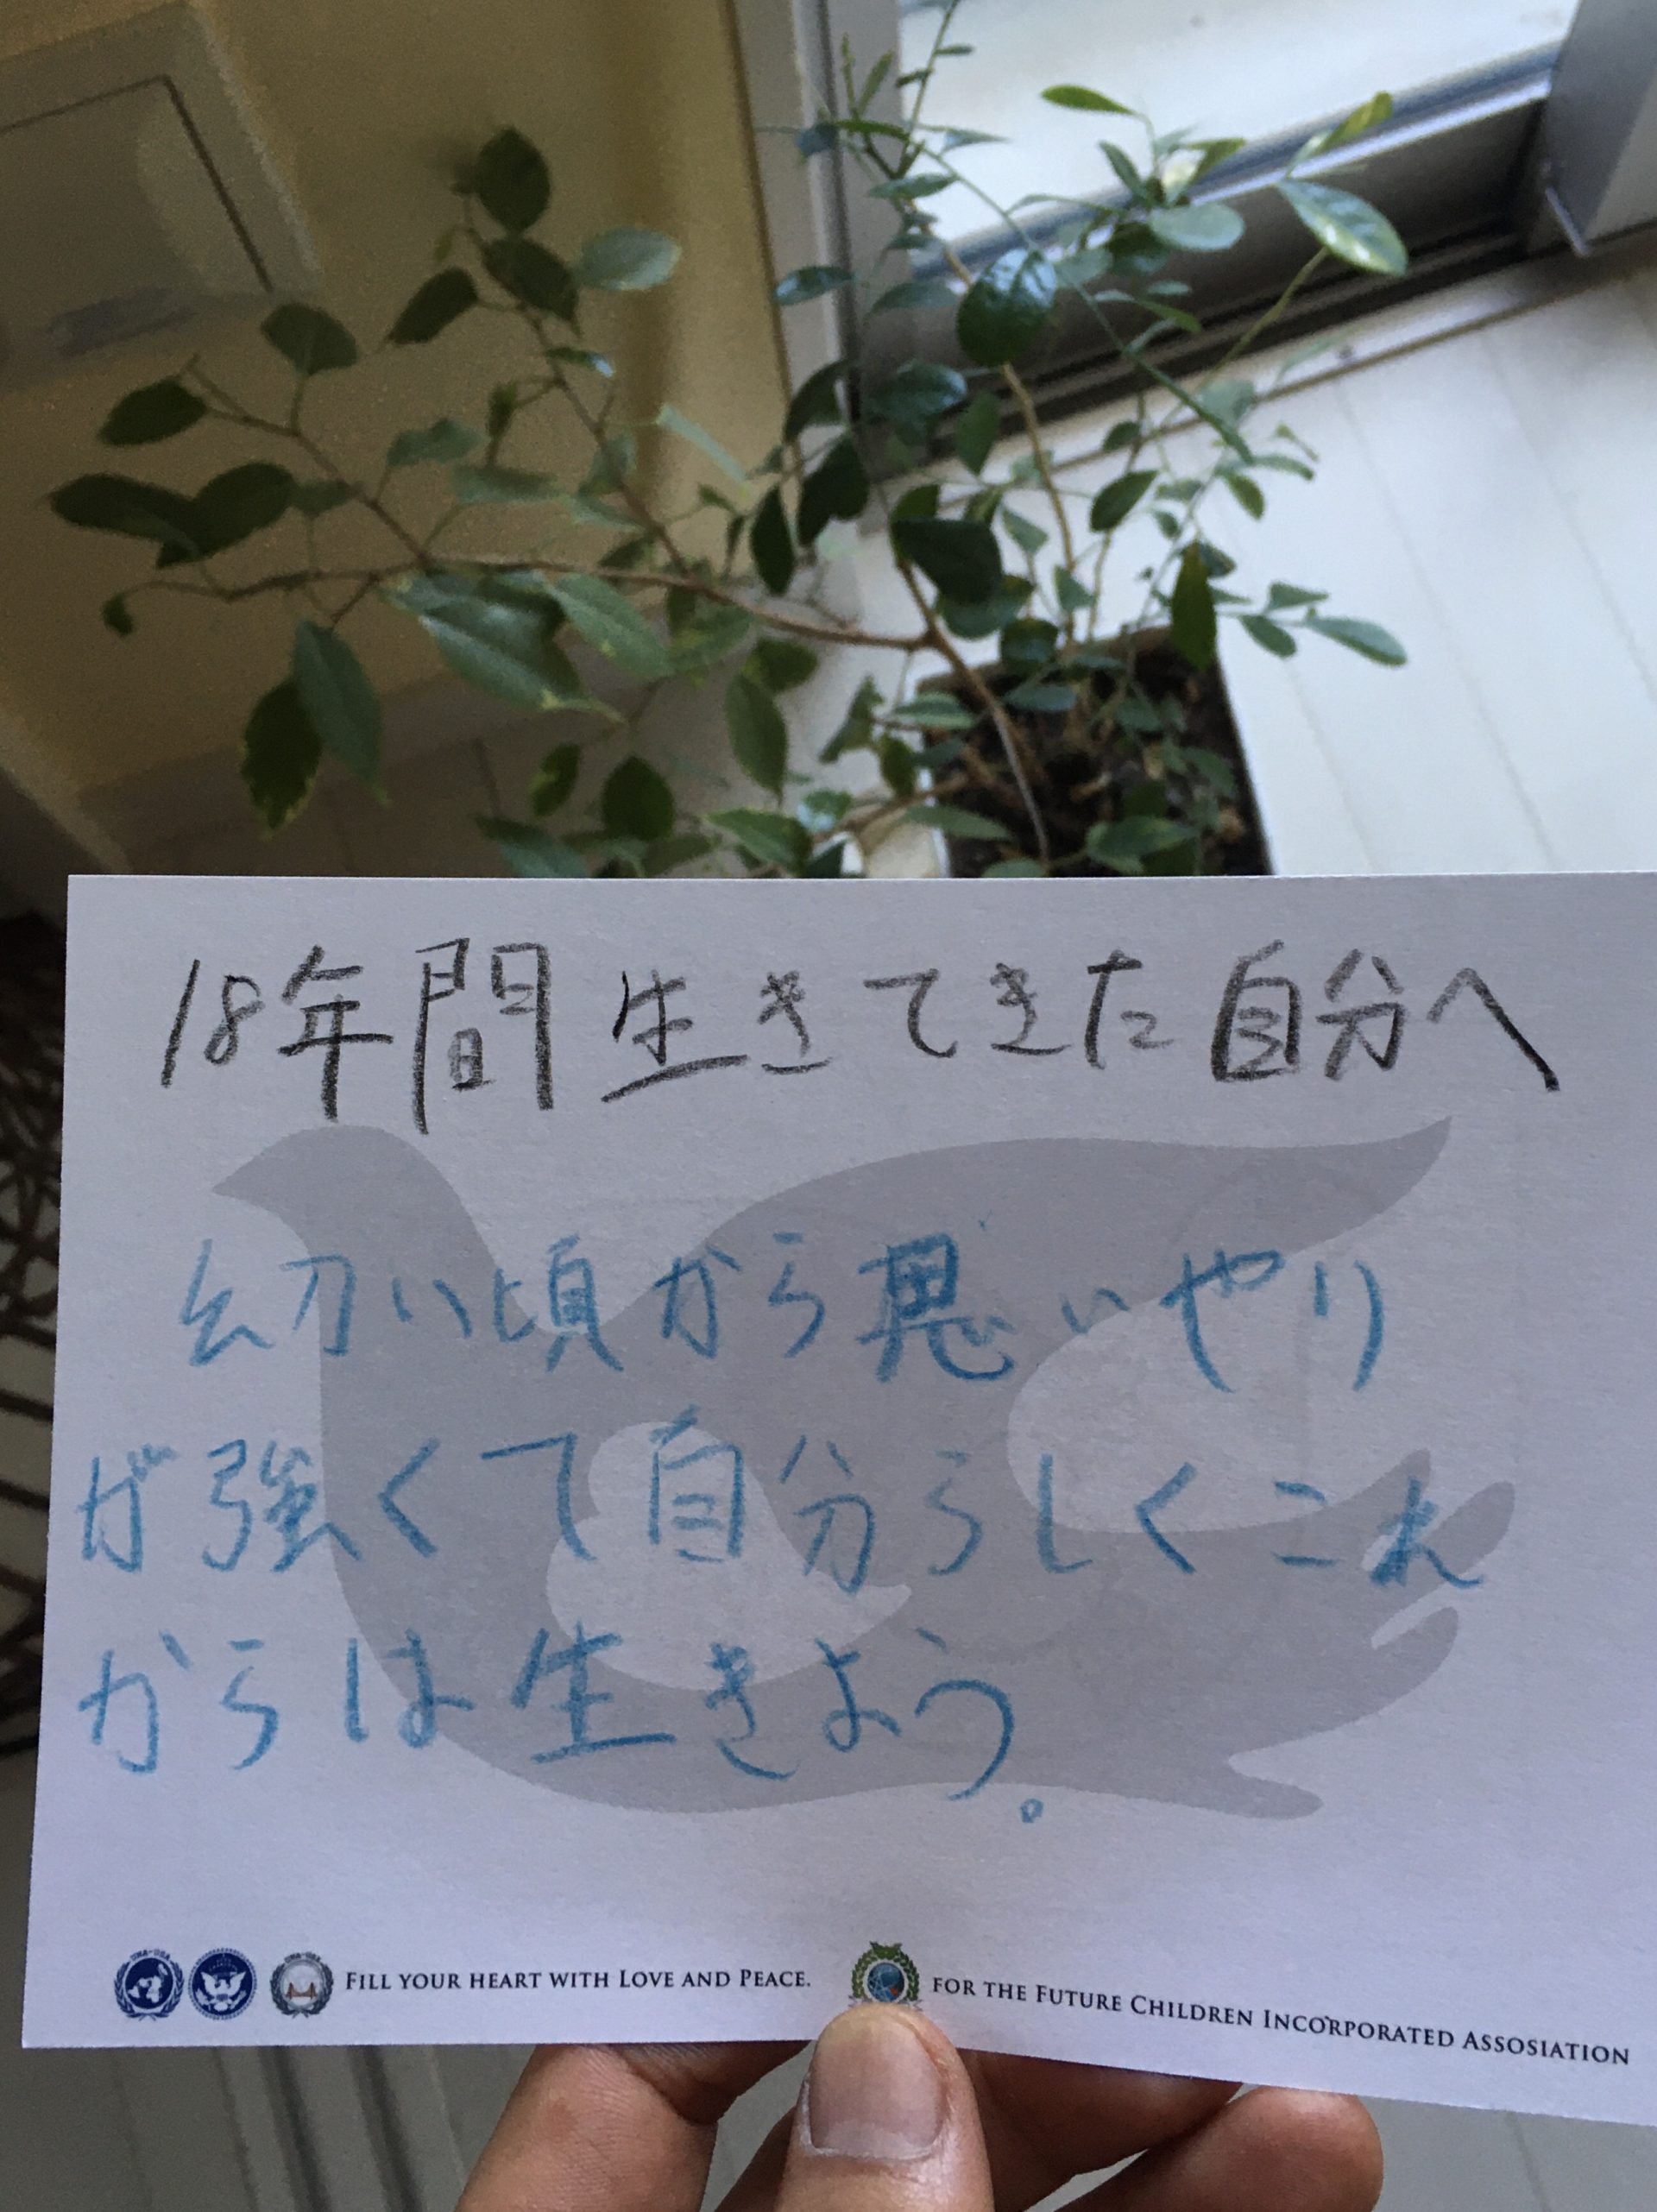 18年間生きてきた自分へ
幼い頃から思いやり
が強くて自分らしくこれ
からは生きよう。
FILL YOUR HEART WITH LOVE AND PEACE.
FOR THE FUTURE CHILDREN INCORPORATED ASSOSIATION